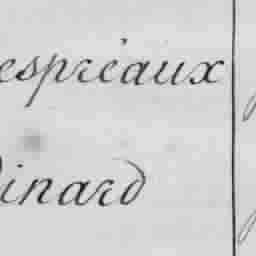 espréaux
inard